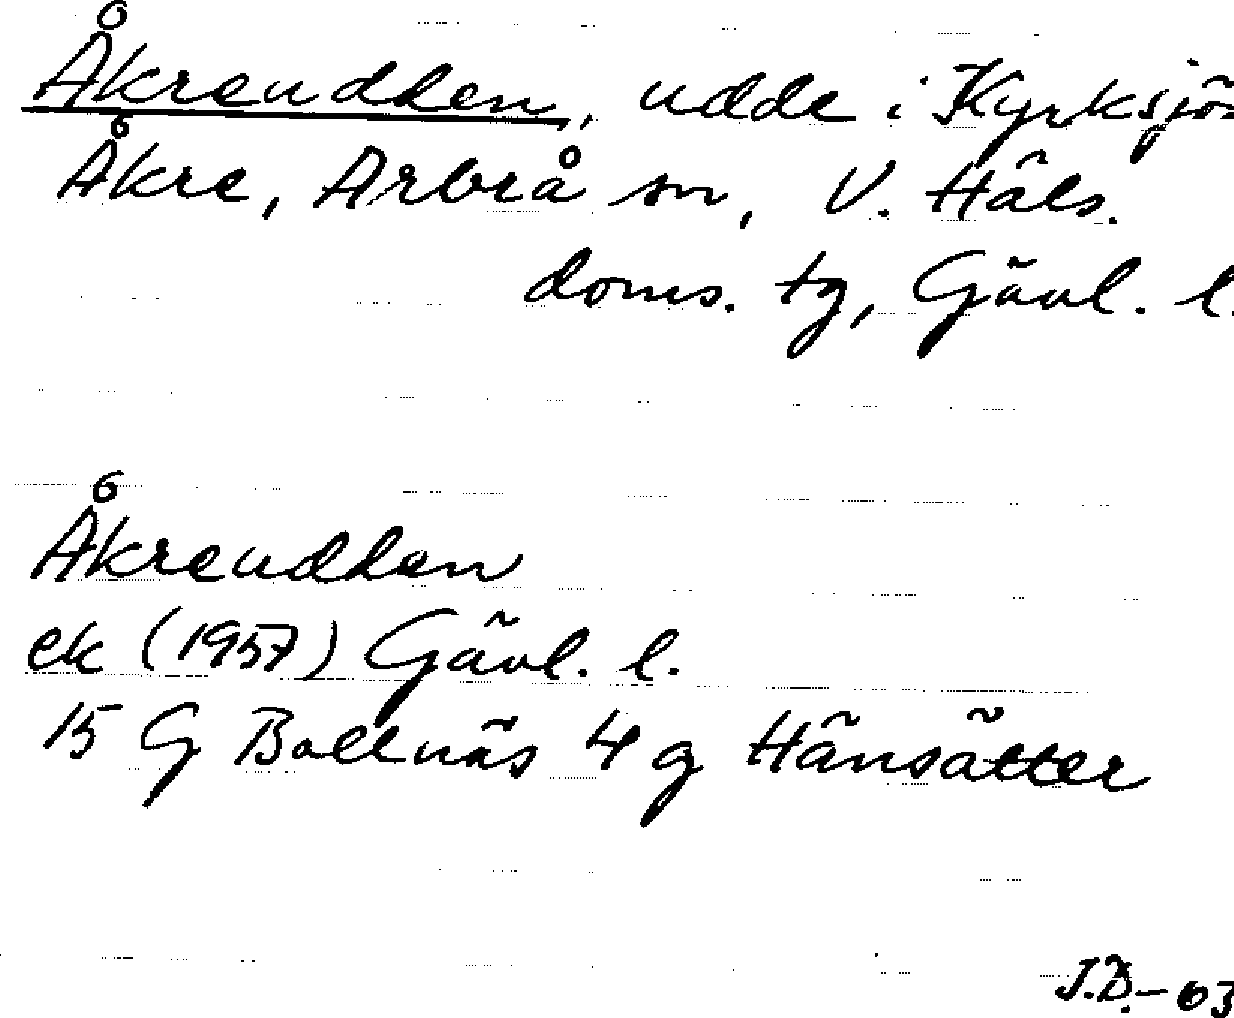 Åkreudden, udde i Kyrksjö-
Åkre, Arbrå sn, V. Häls.
doms. tg, Gävl. l.
Åkreudden
ek (1957) Gävl. l.
15 G Bollnäs 4 g Hänsätter
J.D.-63